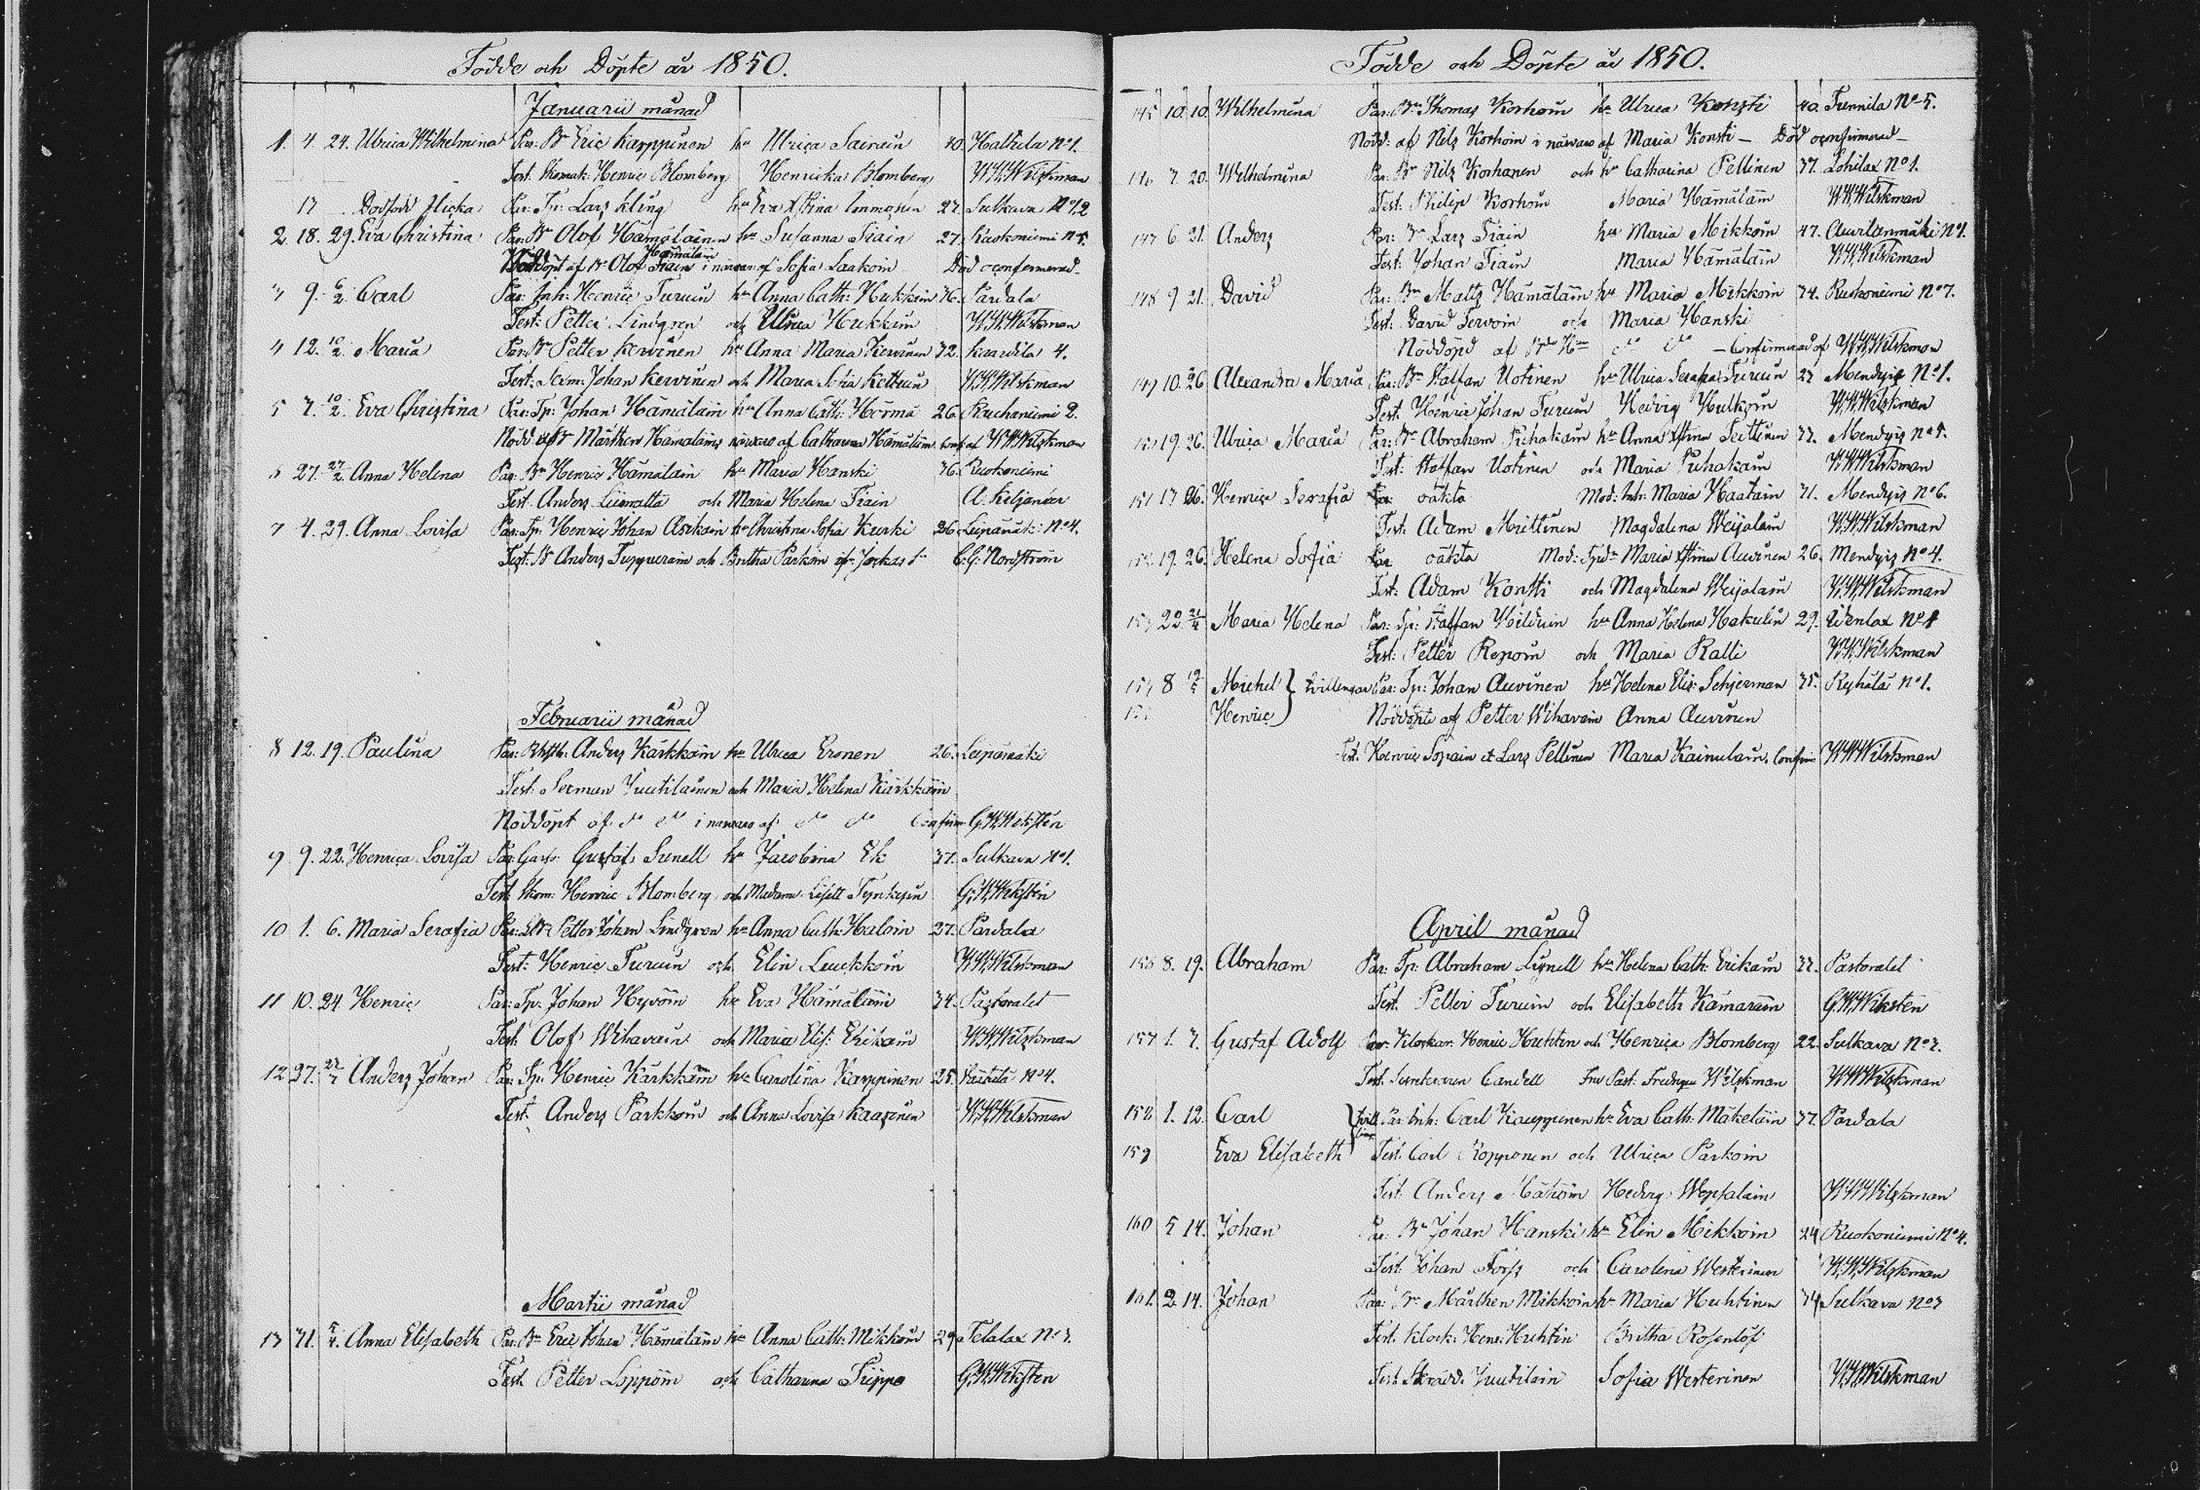 Födde och Döpte år 1850.
Januarii månad
1. 4 24. Ulrica Wilhelmina Par: Bd Eric Karppinen hu Ulrica Sairain 40. Halkila No 1.
Test. Skomak: Henric Blomberg Henricka Blomberg W.W.Wilskman
17 Dödfödd flicka Par: Tp: Lars Kling hu Eva Stina 27. Sulkava No 12
2 18. 29. Eva Christina Par: Bd Olof Hämäläinen hu Susanna Tiain 27. Ruokoniemi No 5.
Nöddöpt af Bd Olof Hämäläin i närvaro af Sofia Laakoin Död oconfirmerad
3 9. 6/2 Carl Par: Inh: Henric Turuin hu Anna Cath: Hukkoin 36. Pardala
Test: Petter Lindgren och Ulrica Hukkoin W.W.Wilskman
4 12. 10/2 Maria Par: Bd Petter Kervinen hu Anna Maria Kervinen 32. Kaartila 4.
Test: Johan Kervinen och Maria Sofia Kettuin W.W.Wilskman
5 7. 10/2 Eva Christina Par: Tp: Johan Hämäläin hu Anna Cath: Härmä 26. Ruchaniemi 2.
Nödd: af Bd Mårthen Hämäläin i närvaro af Catharina Hämäläin conf. af W.W.Wilskman
27. 27/2 Anna Helena Par: Bd Henric Hämäläin hu Maria Hanski 36. Ruokoniemi
Test. Anders Liimatta och Maria Helena Tiain A. Kiljander
7 4. 29. Anna Lovisa Par: Tp: Henric Johan Asikain hu Christina Sofia Kurki 26. Leipämäki No 4.
Test: Bd Anders Tuppurain och Britha Parkoin C. G. Nordström
Februarii månad
8 12. 19. Paulina Par: Anders Karkkain hu Ulrica Eronen 26. Leipämäki
Test. Juutilainen och Maria Helena Karkkain
Nöddöpt af do do i närvaro af do do Confirm: G.W.Wiksten
9 9. 22. Henrica Lovisa Par: Garfv: Gustaf Sunell hu Jacobina Ek 37. Sulkava No 1.
Test. Skom: Henric Blomberg och Madame Lisett G.W.Wiksten
10 1. 6. Maria Serafia Par: Petter Johan Lindgren hu Anna Cath: Haloin 27. Pardala
Test: Henric Turuin och Elin Leuckkoin W.W.Wilskman
11 10. 24 Henric Par: Tp: Johan Hyvöin hu Eva Hämäläin 34. Pastoralet
Test. Olof Wihavain och Maria Elis: Erikain W.W.Wilskman
12 27. Anders Johan Par: Tp: Henric Karkkain hu Carolina Karppinen 25. No 4.
Test. Anders Parkkoin och Anna Lovisa Kaasinen W.W.Wilskman
Martii månad
13 31. Anna Elisabeth Par: Bd Eric Johan Hämäläin hu Anna Cath: Mikkoin 29 Telalax No 3.
Test. Petter Loppöin och Catharina G.W.Wiksten
Födde och Döpte år 1850.
145 10 10. Wilhelmina Par: Bd Thomas Korhoin hu Ulrica Konsti 40. Tiemila No 5.
Nödd: af Nils Korhoin i närvaro af Maria Konsti — Död oconfirmerad —
146 7. 20. Wilhelmina Par: Bd Nils Korhonen och hu Catharina Pellinen 37. Lohilax No 1.
Test. Philip Korhoin Maria Hämäläin W.W.Wilskman
147 6. 21. Anders Par: Bd Lars Tiain hu Maria Mikkoin 47. Auvilanmäki No 1.
Test: Johan Tiain Maria Hämäläin W.W.Wilskman
148 9 21. David Par: Bd Matts Hämäläin hu Maria Mikkoin 34. Ruokoniemi No 7.
Test: David Tervoin och Maria Hanski
Nöddöpd af do do — Confirmerad af W.W.Wilskman
149 10. 26 Alexandra Maria Par: Bd Staffan Uotinen hu Ulrica Serafia Turuin 27 Mendyis No 1.
Test. Henric Johan Turuin Hedvig Hulkoin W.W.Wilskman
150 19 26. Ulrica Maria Par: Bd Abraham Puhakain hu Anna Stina 33. Mendyis No 5.
Test: Staffan Uotinen och Maria Puhakain W.W.Wilskman
151 17 26. Henrica Serafia oäkta Mod: Inh: Maria Haatain 31. Mendyis No 6.
Test. Adam Miettinen Magdalena Weijalain W.W.Wilskman
152 19. 26. Helena Sofia oäkta Mod: Maria Stina Auvinen 26. Mendyis No 4.
Test: Adam Kontti och Magdalena Weijalain W.W.Wilskman
153 22 Maria Helena Par: Tp: Staffan Hilduin hu Anna Helena Hakulin 29. No 1
Test: Petter Repoin och Maria Ralli W.W.Wilskman
154 8 Michel } tvillingar Par: Tp: Johan Auvinen hu Helena Elis: Schjerman 35. Ryhälä No 1.
155 Henric } Nöddöpte af Petter Wihavain Anna Auvinen
Test. Henric Sopain et Lars Pellinen Maria Kainulain. Confirm: W.W.Wilskman
April månad
156 8. 19. Abraham Par: Tp: Abraham Lignell hu Helena Cath: Erikain 32. Pastoralet
Test. Petter Turuin och Elisabeth Kamarain G.W.Wiksten
157 1. 7. Gustaf Adolf Par: Klockar: Henric Huhtin och Henrica Blomberg 22. Sulkava No 7.
Test. Candell Fru Past: Fredrique Wilskman W.W.Wilskman
158 1. 12. Carl } Par: Inh: Carl Kauppinen hu Eva Cath: Mäkeläin 37. Pardala
159 Eva Elisabeth Test. Carl Kopponen och Ulrica Parkoin
Test. Anders Hedvig Wepsäläin W.W.Wilskman
160 5 14. Johan Par: Bd Johan Hanski hu Elin Mikkoin 24 Ruokoniemi No 4.
Test: Johan Forss och Carolina Westerinen W.W.Wilskman
161. 2 14. Johan Par: Bd Mårthen Mikkoin hu Maria Huhtinen 34 Sulkava No 7
Test. Klock: Henr: Huhtin Britha Rosenlöf
Test. Skrädd. Juutilain Sofia Westerinen W.W.Wilskman